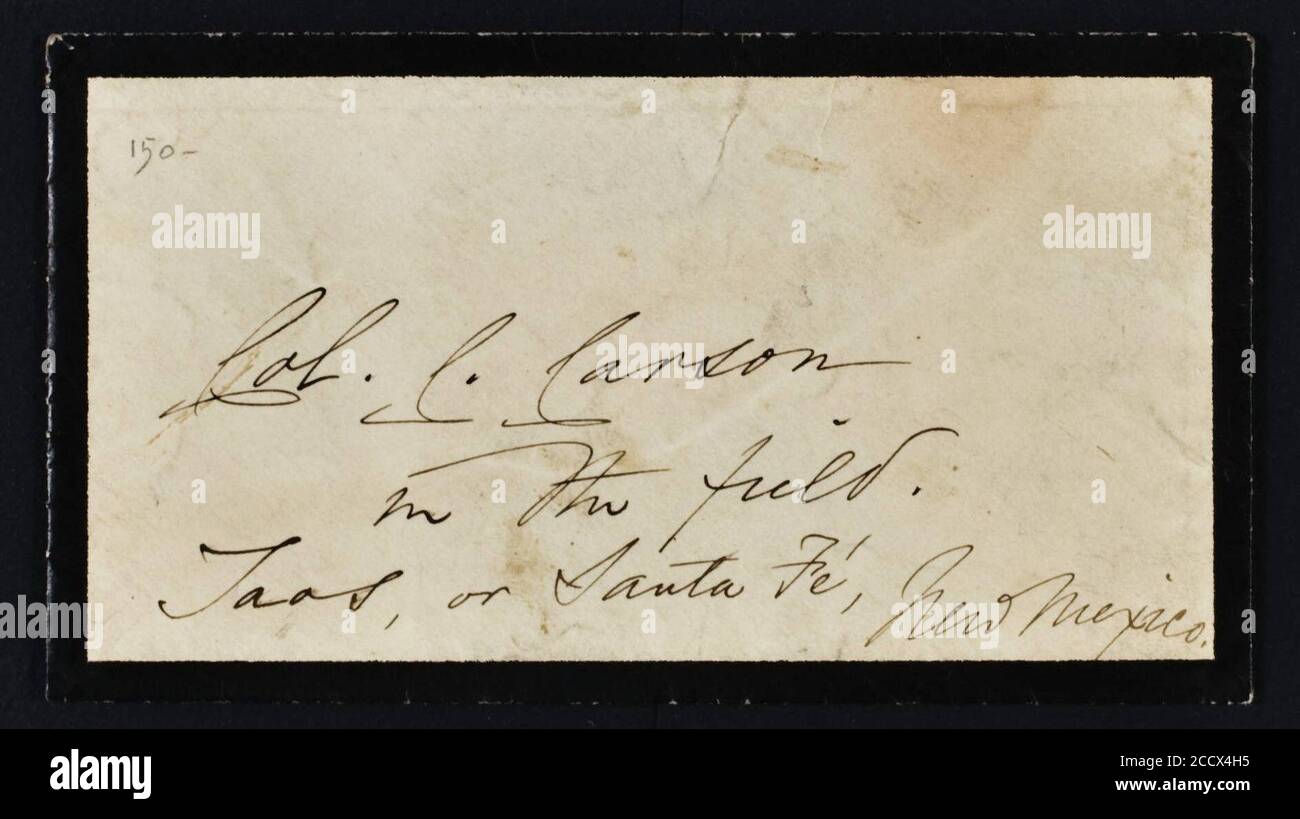 150-
Col. C. Carson
in the field.
Taos, or Santa Fé, New Mexico.
alamy
alamy
alamy
a
a
a
a
a
a
a
a
a
a
alamy
Image ID: 2CCX4H5
www.alamy.com